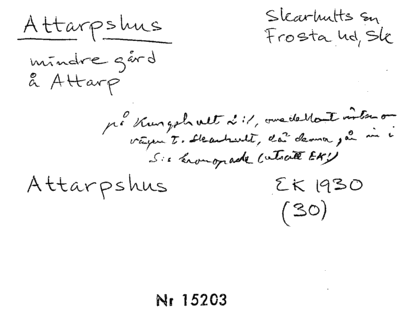 Attarpshus
Skarhults sn
Frosta hd, Sk
mindre gård
å Attarp
på Kungshult 2:1, omedelbart väster om
vägen t. Skarhult, där denna går in i
S:s kronopark (utsatt EK)
Attarpshus
EK 1930
(30)
Nr 15203